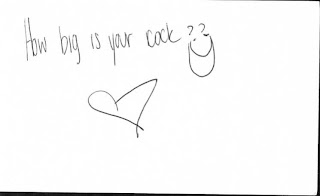 How big is your cock??